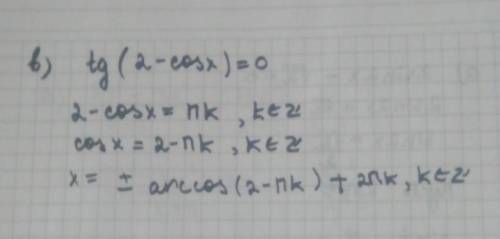 в) tg(2-cosx)=0
2-cosx=πk, k∈Z
cosx=2-πk, k∈Z
x= ± arccos(2-πk)+2πk, k∈Z